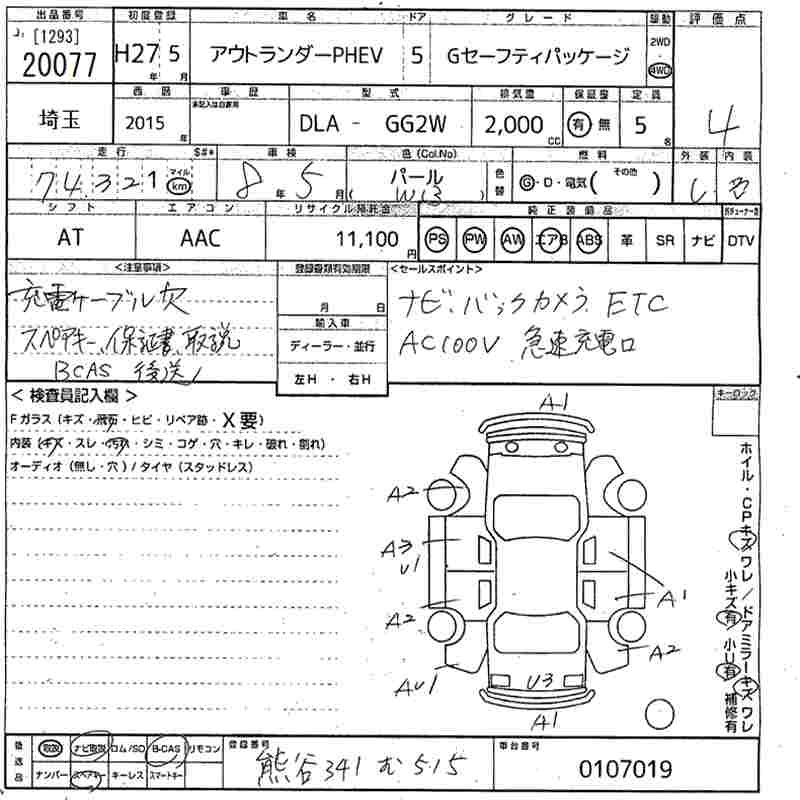 出品番号 初度登録 車名 ドア グレード 駆動 評価点
[1293]
20077 H27年 5月 アウトランダーPHEV 5 Gセーフティパッケージ 2WD・4WD
西暦 車歴 型式 排気量 保証書 定員
未記入は自家用
埼玉 2015年 DLA - GG2W 2,000CC 有・無 5名 4
走行 $#* 車検 色(Col.No) 燃料 外装 内装
74321 マイル km 8年 5月 パール (W13) 色替 G・D・電気( その他 ) B
シフト エアコン リサイクル預託金 純正装備品
AT AAC 11,100円 PS PW AW エアB ABS 革 SR ナビ DTV
<注意事項> 登録書類有効期限 <セールスポイント>
充電ケーブル欠 月 日 ナビ.バックカメラ ETC
スペアキー、保証書、取説 輸入車 AC100V 急速充電口
BCAS 後送 ディーラー・並行
左H ・ 右H
< 検査員記入欄 > キーロック
Fガラス (キズ・飛石・ヒビ・リペア跡・X要)
内装 (キズ・スレ・汚れ・シミ・コゲ・穴・キレ・破れ・割れ)
オーディオ (無し・穴) / タイヤ (スタッドレス)
A1
A2
A3
U1
A2 A1
A2
AU1 U3
A1
ホイル・CPキズワレ/ドアミラーキズワレ
小キズ有 小U有 補修有
後送品 取説 ナビ取説 ロム/SD B-CAS リモコン 登録番号 車台番号
ナンバー スペアキー キーレス スマートキー 熊谷 341 む 515 0107019